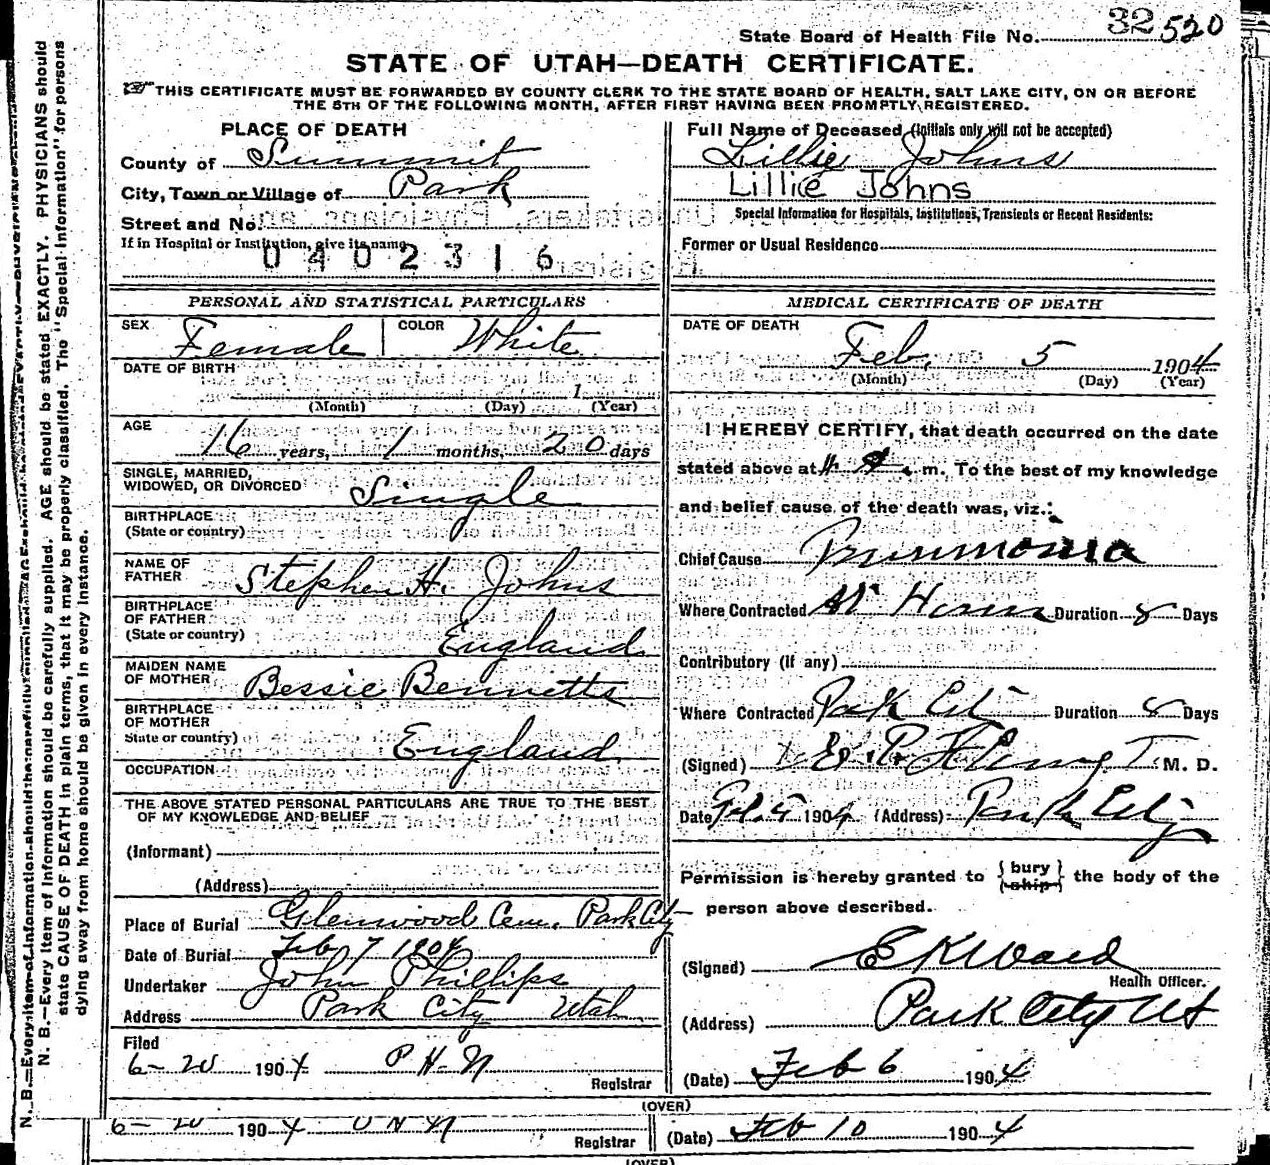 State Board of Health File No. 32 520
STATE OF UTAH—DEATH CERTIFICATE.
THIS CERTIFICATE MUST BE FORWARDED BY COUNTY CLERK TO THE STATE BOARD OF HEALTH, SALT LAKE CITY, ON OR BEFORE
THE 5TH OF THE FOLLOWING MONTH, AFTER FIRST HAVING BEEN PROMPTLY REGISTERED.
PLACE OF DEATH
County of Summit
City, Town or Village of Park
Street and No.
If in Hospital or Institution, give its name
0402316
Full Name of Deceased (Initials only will not be accepted)
Lillie Johns
Lillie Johns
Special Information for Hospitals, Institutions, Transients or Recent Residents:
Former or Usual Residence
PERSONAL AND STATISTICAL PARTICULARS
SEX Female COLOR White
DATE OF BIRTH
1
(Month) (Day) (Year)
AGE
16 years, 1 months, 20 days
SINGLE, MARRIED,
WIDOWED, OR DIVORCED Single
BIRTHPLACE
(State or country)
NAME OF
FATHER Stephen H. Johns
BIRTHPLACE
OF FATHER
(State or country) England
MAIDEN NAME
OF MOTHER Bessie Bennetts
BIRTHPLACE
OF MOTHER
State or country) England
OCCUPATION
THE ABOVE STATED PERSONAL PARTICULARS ARE TRUE TO THE BEST
OF MY KNOWLEDGE AND BELIEF
(Informant)
(Address)
Place of Burial Glenwood Cem. Park City
Date of Burial Feb 7 1904
Undertaker John Phillips
Address Park City Utah
Filed
6-20 1904 P H N
Registrar
MEDICAL CERTIFICATE OF DEATH
DATE OF DEATH
Feb. 5 1904
(Month) (Day) (Year)
I HEREBY CERTIFY, that death occurred on the date
stated above at m. To the best of my knowledge
and belief cause of the death was, viz.:
Chief Cause Pneumonia
Where Contracted At Home Duration 8 Days
Contributory (If any)
Where Contracted Park City Duration 8 Days
(Signed) M. D.
Date Feb. 5 1904 (Address) Park City
Permission is hereby granted to { bury
ship } the body of the
person above described.
(Signed) E K Ward
Health Officer.
(Address) Park City Ut
(Date) Feb 6 1904
(OVER)
6-20 1904 N
Registrar
(Date) Feb 10 1904
(OVER)
N. B.—Every item of information should be carefully supplied. AGE should be stated EXACTLY. PHYSICIANS should
state CAUSE OF DEATH in plain terms, that it may be properly classified. The "Special Information" for persons
dying away from home should be given in every instance.